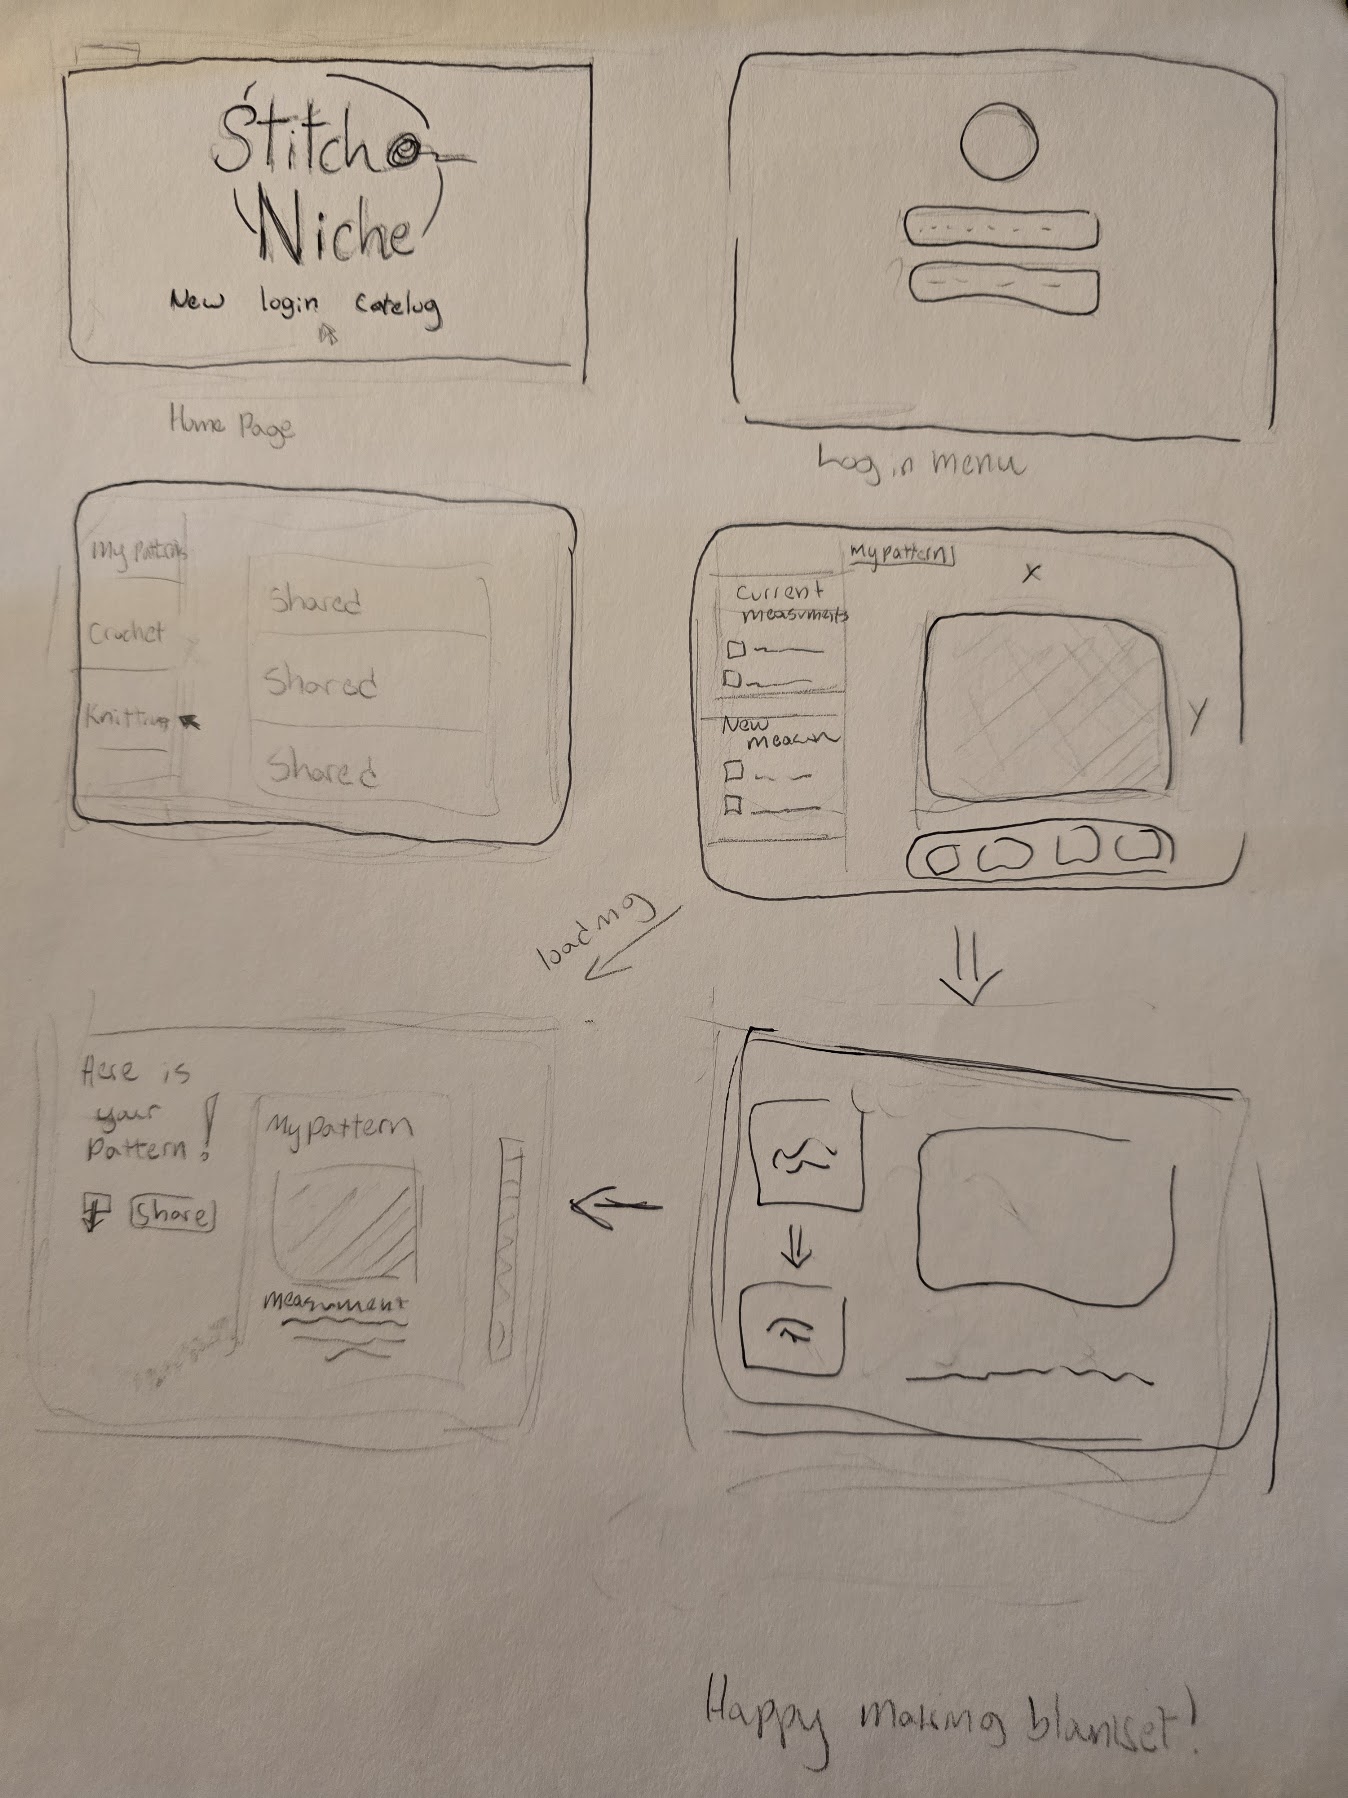 Stitch
Niche
New login Catelog
Home Page
Login menu
My Patterns
Crochet
Knitting
Shared
Shared
Shared
My pattern
X
Current
measurments
New
measurm
Y
loading
Here is
your
Pattern!
Share
My pattern
measurment
Happy making blanket!